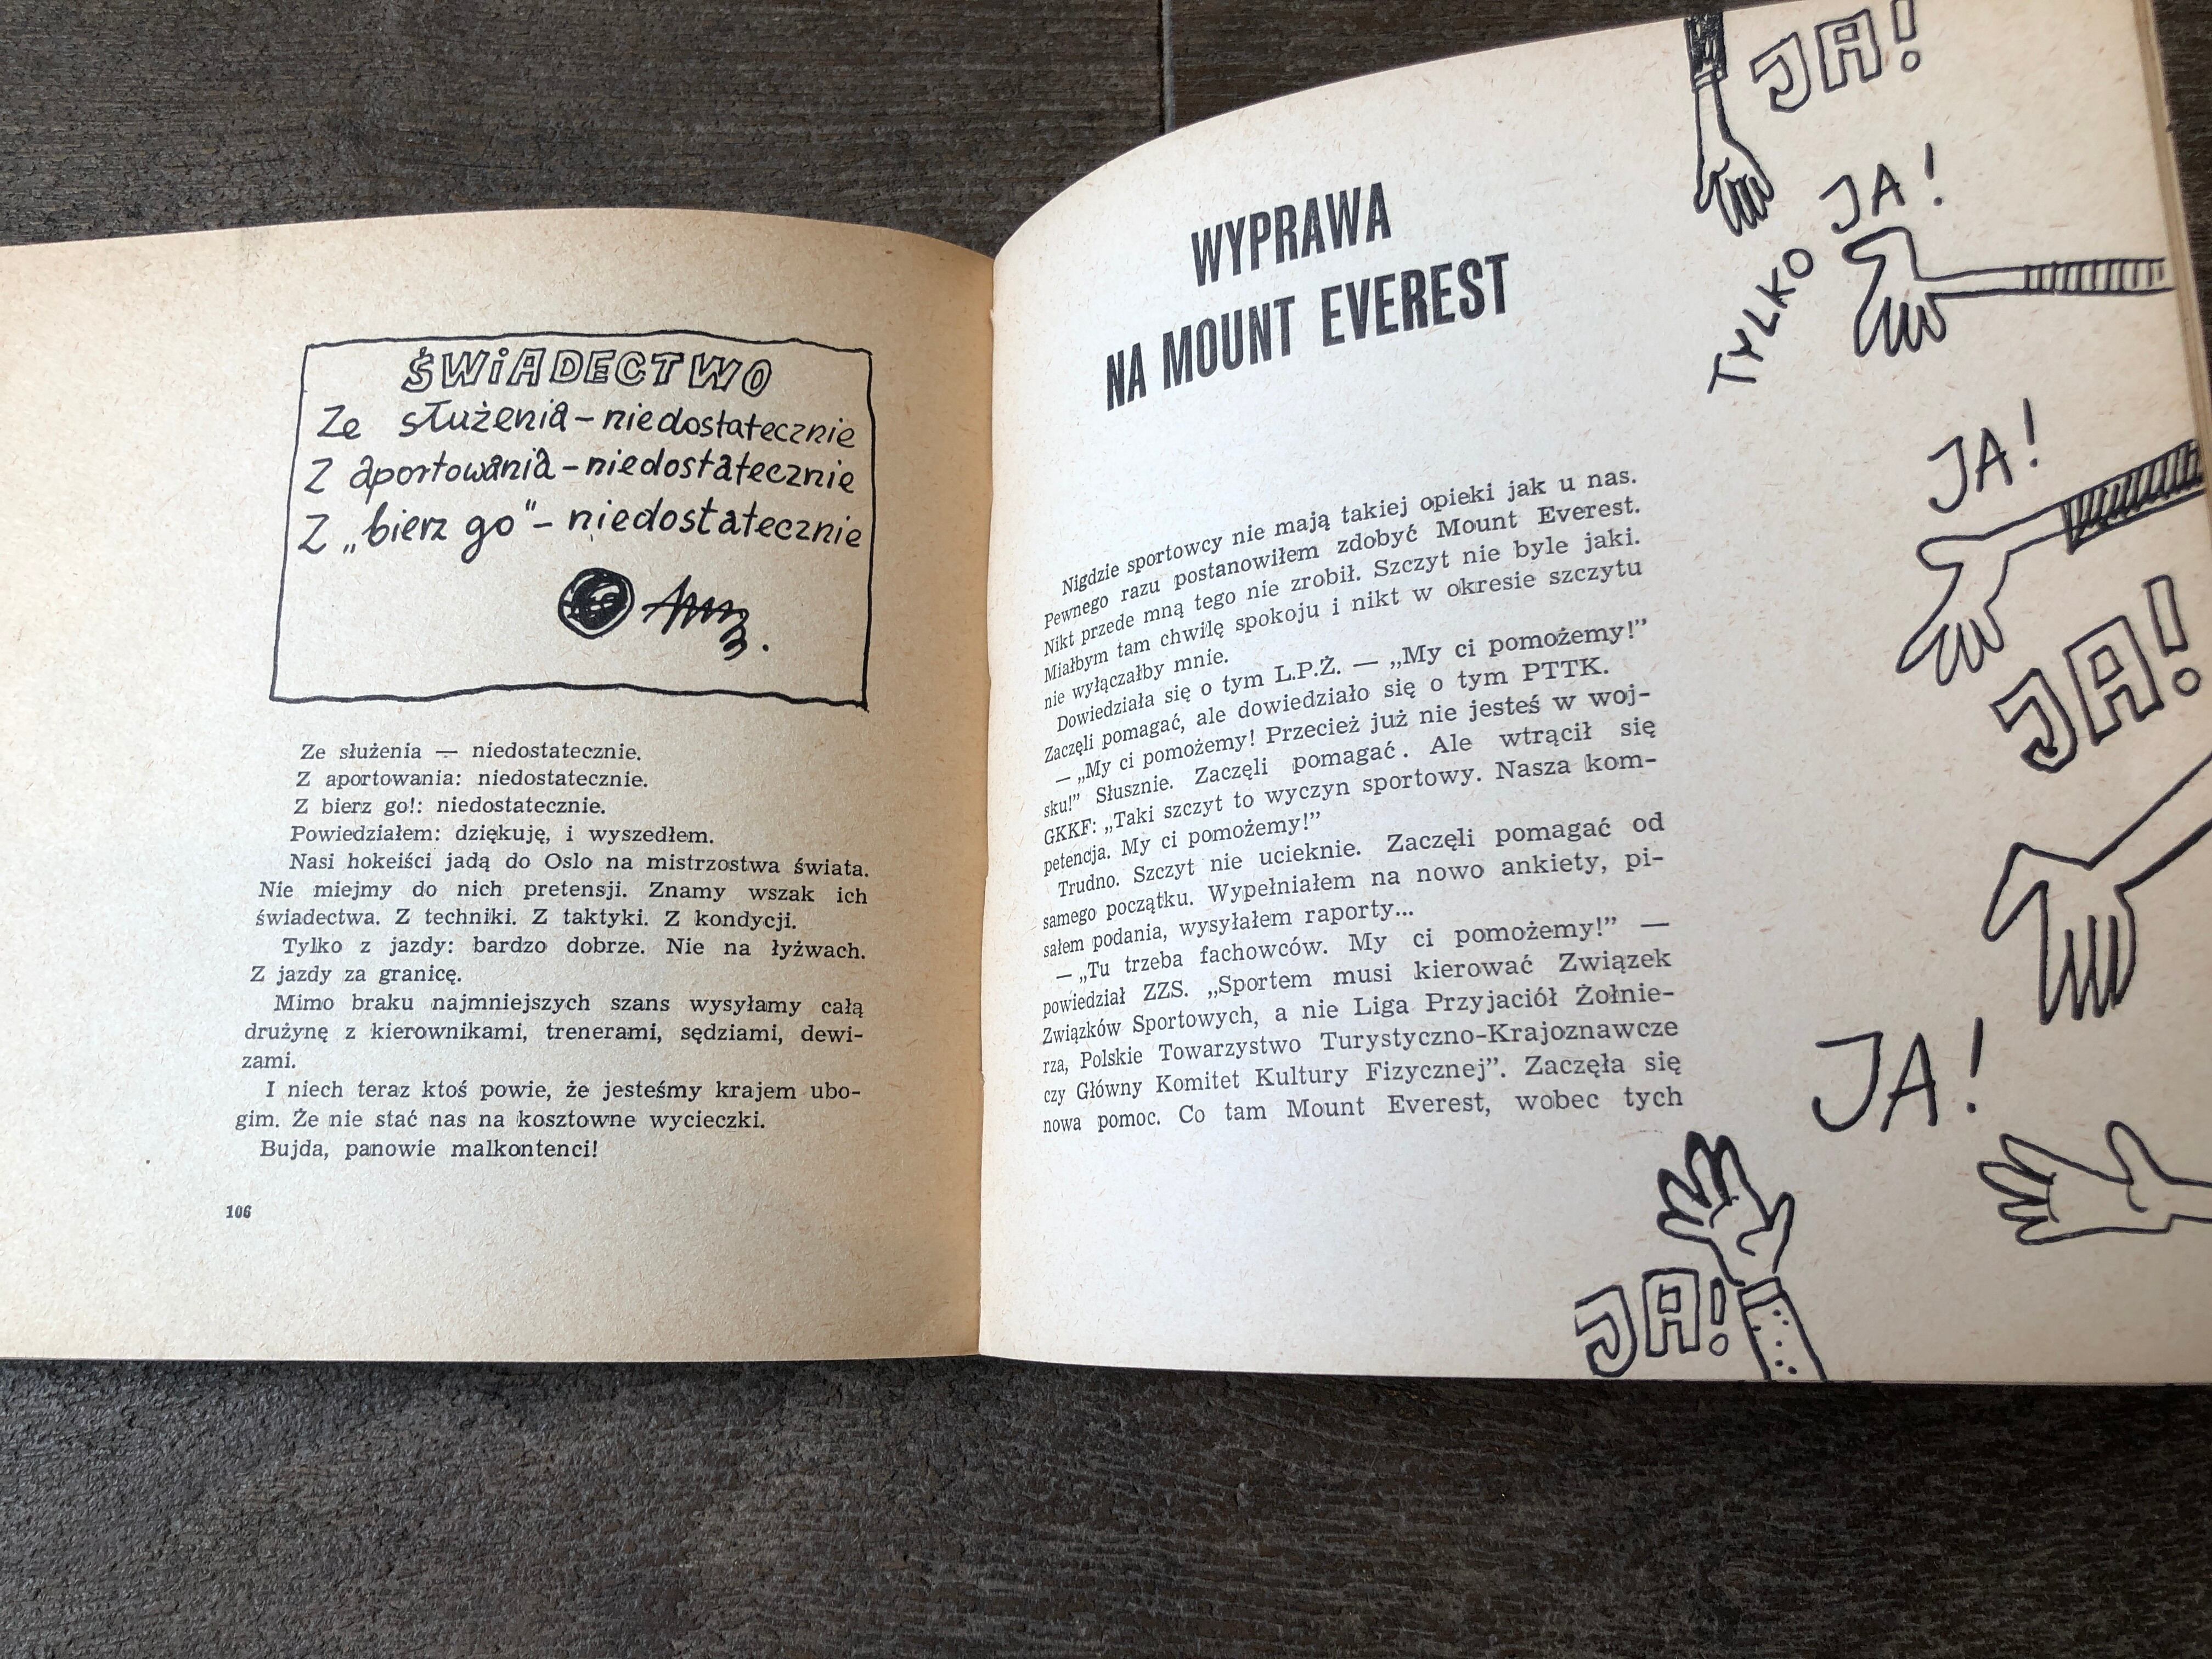 ŚWIADECTWO
Ze służenia – niedostatecznie
Z aportowania – niedostatecznie
Z „bierz go" – niedostatecznie
Ze służenia — niedostatecznie.
Z aportowania: niedostatecznie.
Z bierz go!: niedostatecznie.
Powiedziałem: dziękuję, i wyszedłem.
Nasi hokeiści jadą do Oslo na mistrzostwa świata.
Nie miejmy do nich pretensji. Znamy wszak ich
świadectwa. Z techniki. Z taktyki. Z kondycji.
Tylko z jazdy: bardzo dobrze. Nie na łyżwach.
Z jazdy za granicę.
Mimo braku najmniejszych szans wysyłamy całą
drużynę z kierownikami, trenerami, sędziami, dewi-
zami.
I niech teraz ktoś powie, że jesteśmy krajem ubo-
gim. Że nie stać nas na kosztowne wycieczki.
Bujda, panowie malkontenci!
106
WYPRAWA
NA MOUNT EVEREST
Nigdzie sportowcy nie mają takiej opieki jak u nas.
Pewnego razu postanowiłem zdobyć Mount Everest.
Nikt przede mną tego nie zrobił. Szczyt nie byle jaki.
Miałbym tam chwilę spokoju i nikt w okresie szczytu
nie wyłączałby mnie.
Dowiedziała się o tym L.P.Ż. — „My ci pomożemy!”
Zaczęli pomagać, ale dowiedziało się o tym PTTK.
— „My ci pomożemy! Przecież już nie jesteś w woj-
sku!” Słusznie. Zaczęli pomagać. Ale wtrącił się
GKKF: „Taki szczyt to wyczyn sportowy. Nasza kom-
petencja. My ci pomożemy!”
Trudno. Szczyt nie ucieknie. Zaczęli pomagać od
samego początku. Wypełniałem na nowo ankiety, pi-
sałem podania, wysyłałem raporty...
— „Tu trzeba fachowców. My ci pomożemy!” —
powiedział ZZS. „Sportem musi kierować Związek
Związków Sportowych, a nie Liga Przyjaciół Żołnie-
rza, Polskie Towarzystwo Turystyczno-Krajoznawcze
czy Główny Komitet Kultury Fizycznej”. Zaczęła się
nowa pomoc. Co tam Mount Everest, wobec tych
JA!
TYLKO JA!
JA!
JA!
JA!
JA!